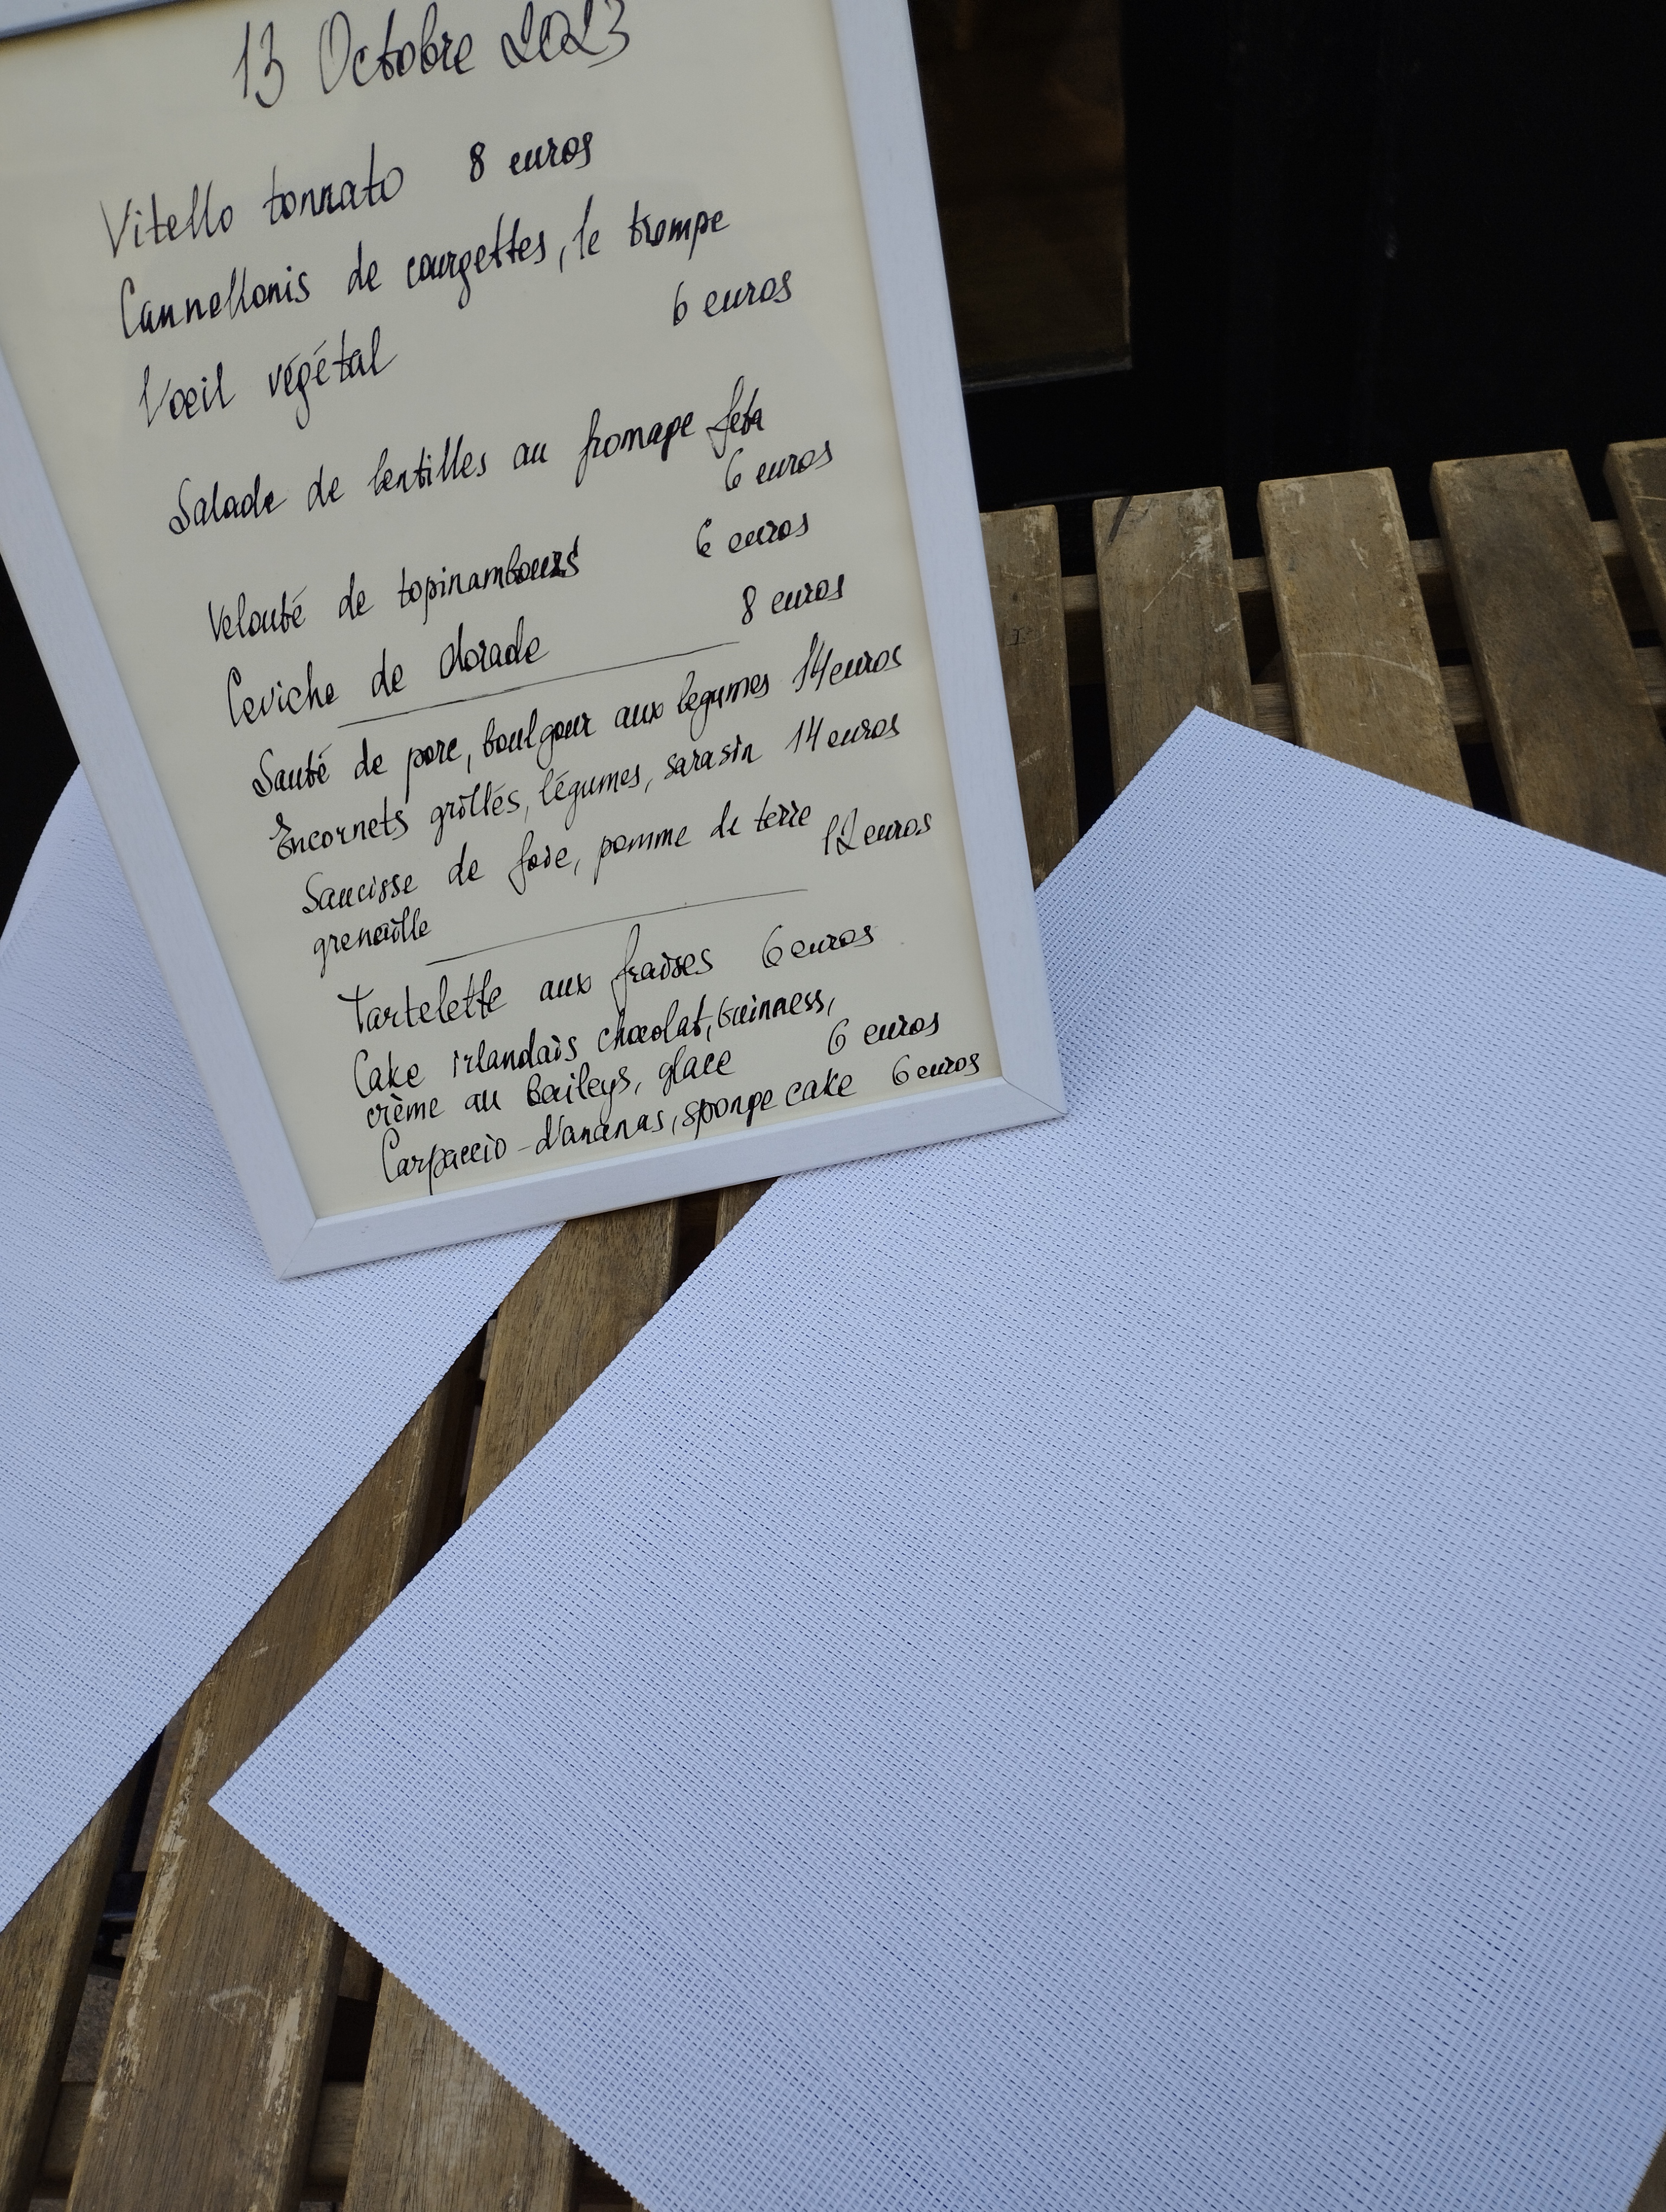 13 Octobre 2023
Vitello tonnato 8 euros
Cannellonis de courgettes, le trompe
l'oeil végétal 6 euros
Salade de lentilles au fromage feta
6 euros
Velouté de topinambours 6 euros
Ceviche de dorade 8 euros
Sauté de porc, boulgour aux légumes 14 euros
Encornets grillés, légumes, sarasin 14 euros
Saucisse de foie, pomme de terre
grenaille 12 euros
Tartelette aux fraises 6 euros
Cake irlandais chocolat, Guinness,
crème au baileys, glace 6 euros
Carpaccio d'ananas, sponge cake 6 euros